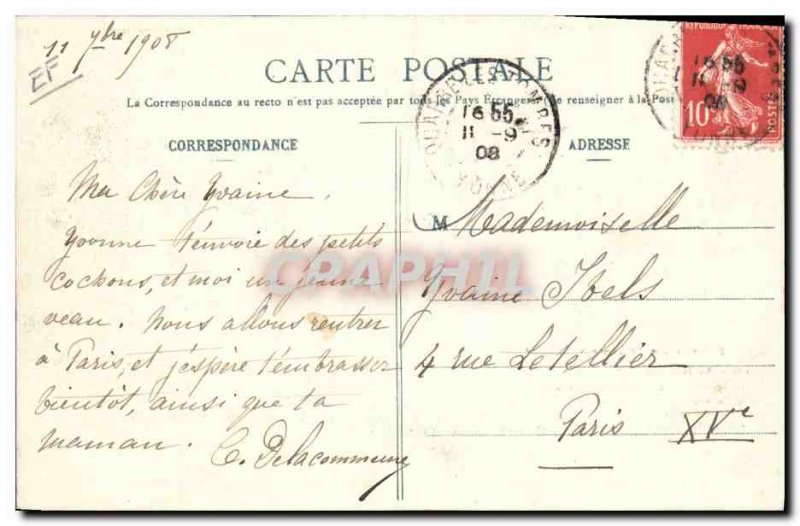 11 7bre 1908
EF
CARTE POSTALE
La Correspondance au recto n'est pas acceptée par tous les Pays Étrangers (Se renseigner à la Poste
CORRESPONDANCE
Ma Chère Yvaine,
Yvonne t'envoie des petits
cochons, et moi un jeune
veau. Nous allons rentrer
à Paris, et j'espère t'embrasser
bientôt, ainsi que ta
maman.
C. Delacommune
QUARRE-LES-TOMBES
16 55
11 -9
08
YONNE
REPUBLIQUE FRANÇAISE
10
POSTES
ADRESSE
M Mademoiselle
Yvaine Ibels
4 rue Letellier
Paris XVe
CPAPHIL